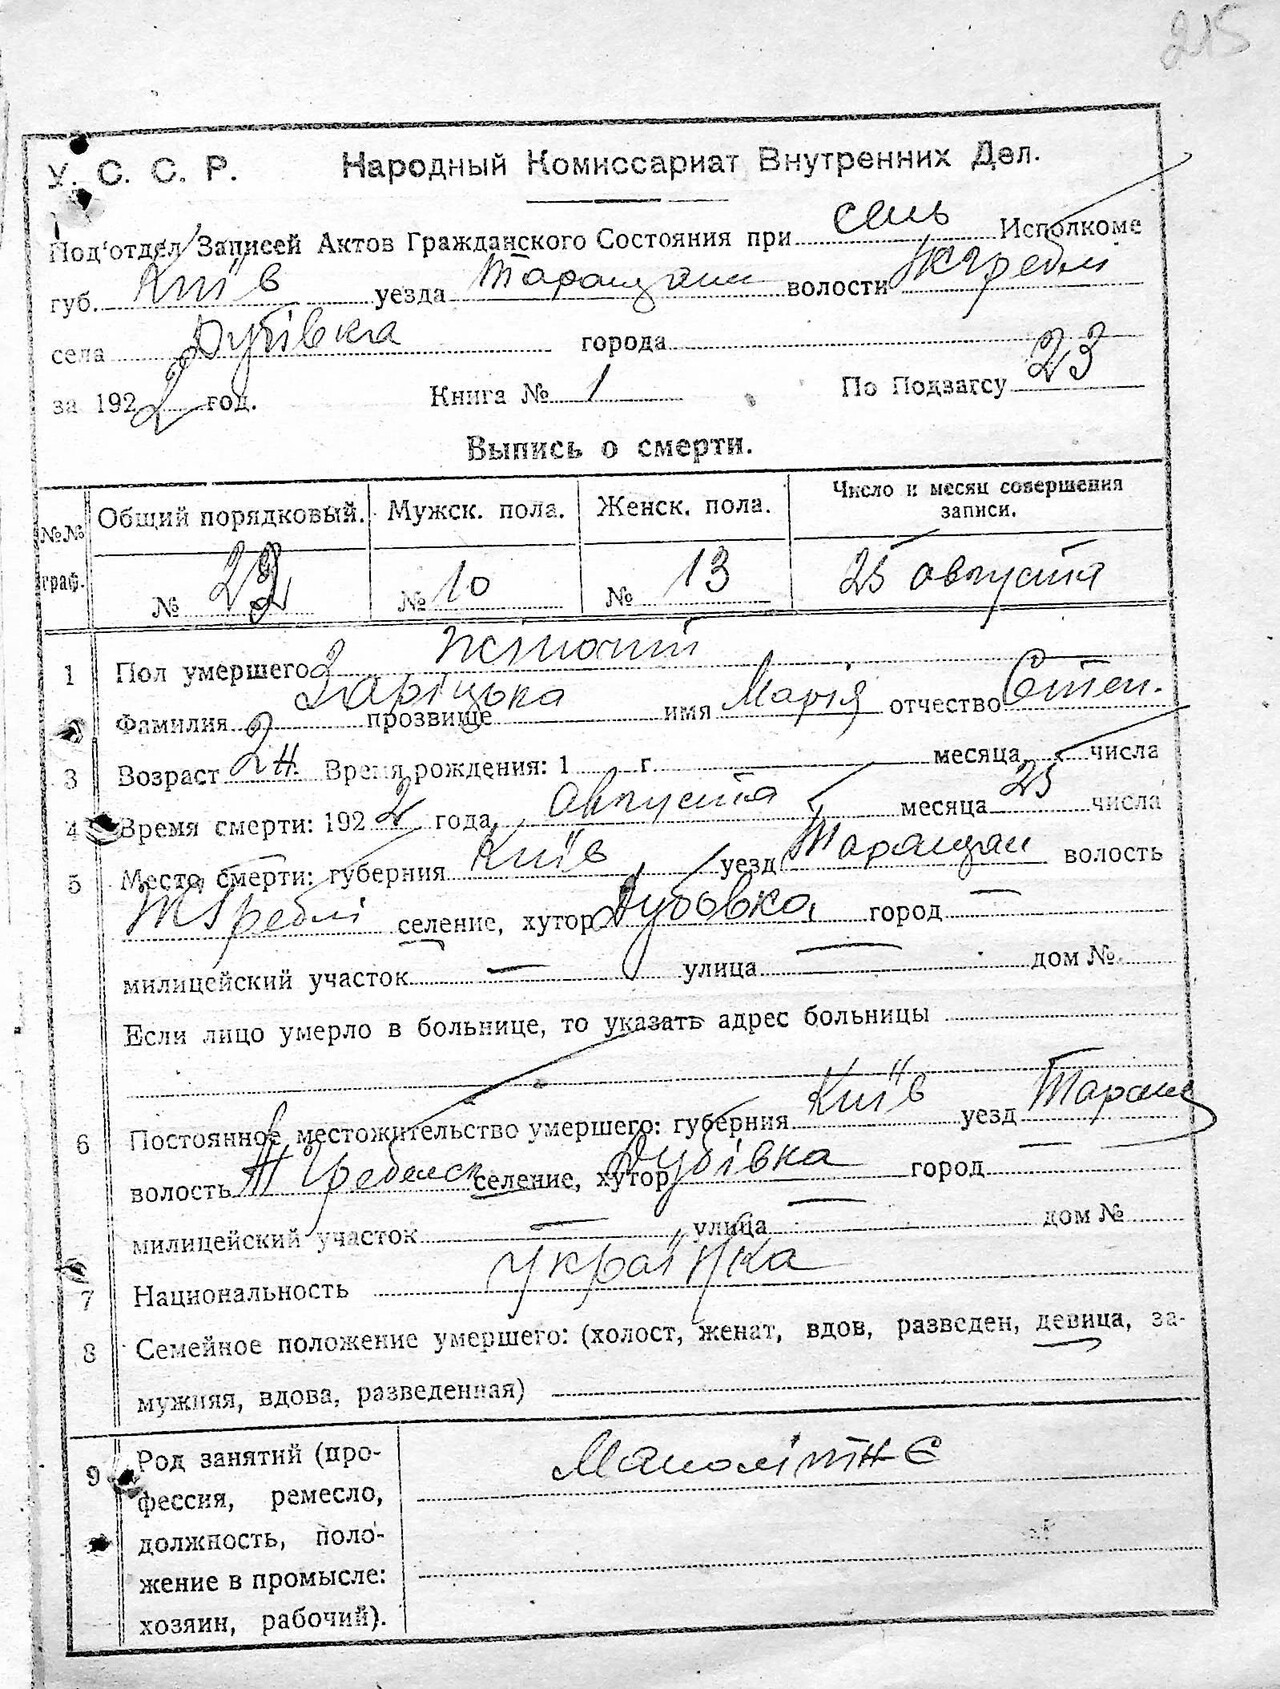 215
У. С. С. Р. Народный Комиссариат Внутренних Дел.
Под'отдел Записей Актов Гражданского Состояния при сель Исполкоме
губ. Київ уезда Таращан волости Жгреблі
села Дубівка города
за 1922 год. Книга № 1 По Подзагсу 23
Выпись о смерти.
№№ граф. Общий порядковый. Мужск. пола. Женск. пола. Число и месяц совершения записи.
№ № 10 № 13 25 августа
1 Пол умершего жіночий
Фамилия Заріцька прозвище имя Марія отчество Степ.
3 Возраст 2 н. Время рождения: 1 г. месяца числа
4 Время смерти: 1922 года августа месяца 25 числа
5 Место смерти: губерния Київ уезд Таращан волость
ЖГреблі селение, хутор Дубовка город —
милицейский участок — улица — дом №
Если лицо умерло в больнице, то указать адрес больницы
6 Постоянное местожительство умершего: губерния Київ уезд Таращ
волость Ж Гребельск селение, хутор Дубівка город —
милицейский участок — улица — дом №
7 Национальность Українка
8 Семейное положение умершего: (холост, женат, вдов, разведен, девица, за-
мужняя, вдова, разведенная)
9 Род занятий (про- Малолітнє
фессия, ремесло,
должность, поло-
жение в промысле:
хозяин, рабочий).